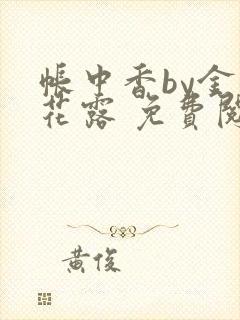 帳中香by金
花露 免費閱
黃俊